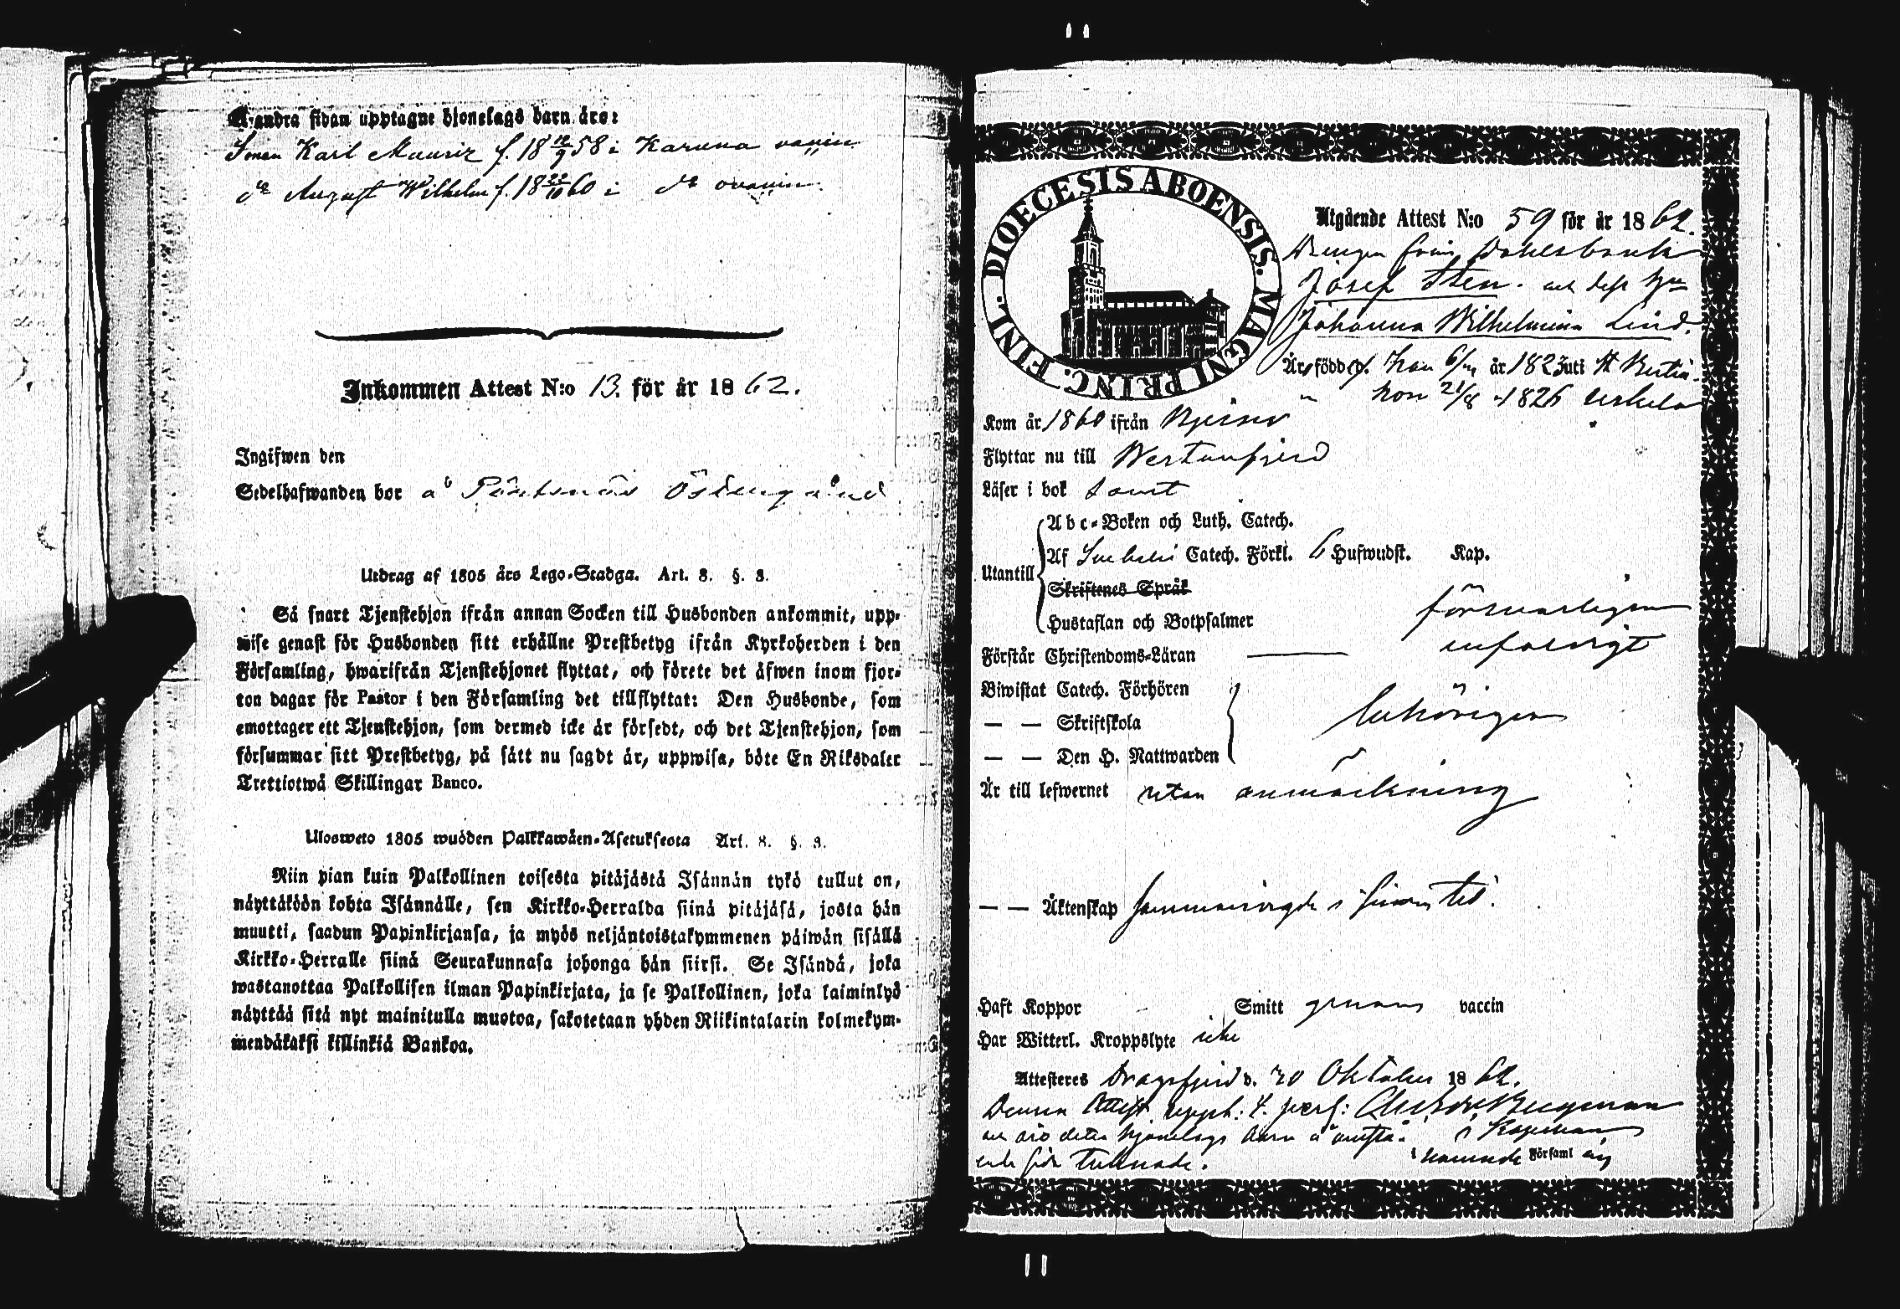 A andra sidan upptagne hjonelags barn äro:
Sonen Karl Mauriz f. 18 12/9 58 i Karuna
do August Wilhelm f. 18 22/10 60 i do
Inkommen Attest N:o 13. för år 1862.
Ingifwen den
Sedelhafwanden bor å
Utdrag af 1805 års Lego-Stadga. Art. 8. §. 3.
Så snart Tjenstehjon ifrån annan Socken till Husbonden ankommit, upp-
wise genast för Husbonden sitt erhållne Prestbetyg ifrån Kyrkoherden i den
Församling, hwarifrån Tjenstehjonet flyttat, och förete det äfwen inom fjor-
ton dagar för Pastor i den Församling det tillflyttat: Den Husbonde, som
emottager ett Tjenstehjon, som dermed icke är försedt, och det Tjenstehjon, som
försummar sitt Prestbetyg, på sätt nu sagdt är, uppwisa, böte En Riksdaler
Trettiotwå Skillingar Banco.
Ulosweto 1805 wuoden Palkkawäen-Asetuksesta Art. 8. §. 3.
Niin pian kuin Palkollinen toisesta pitäjästä Isännän tykö tullut on,
näyttäköön kohta Isännälle, sen Kirkko-Herralda siinä pitäjäsä, josta hän
muutti, saadun Papinkirjansa, ja myös neljäntoistakymmenen päiwän sisällä
Kirkko-Herralle siinä Seurakunnasa johonga hän siirsi. Se Isändä, joka
wastanottaa Palkollisen ilman Papinkirjata, ja se Palkollinen, joka laiminlyö
näyttää sitä nyt mainitulla muotoa, sakotetaan yhden Riikintalarin kolmekym-
mendäkaksi killinkiä Bankoa.
FINL. DIOECESIS ABOENSIS. MAGNI PRINC.
Utgående Attest N:o 59 för år 1862.
Drengen från Dahlsbruk
Josef Sten. och dess hu
Johanna Wilhelmina Lind.
Är född d. han 6/ år 1823 uti
hon 21/8 1826
Kom år 1860 ifrån Bjerno
Flyttar nu till Westanfjerd
Läser i bok samt
Utantill
Abc-Boken och Luth. Catech.
Af Svebelii Catech. Förkl. 6 Hufwudst. Kap.
Skriftenes Språk
Hustaflan och Botpsalmer försvarligen
Förstår Christendoms-Läran enfaldigt
Biwistat Catech. Förhören
— — Skriftskola behörigen
— — Den H. Nattwarden
Är till lefwernet utan anmärkning
— — Äktenskap sammanvigde i sinom tid.
Haft Koppor Smitt genom vaccin
Har Witterl. Kroppslyte icke
Attesteres Dragsfjerd d. 20 Oktober 1862.
Denna Attest uppt: 4. pers: Bergman
och äro detta hjonelags barn å motstå- Kapellan
ende sida tecknade. i namnde Församl ing